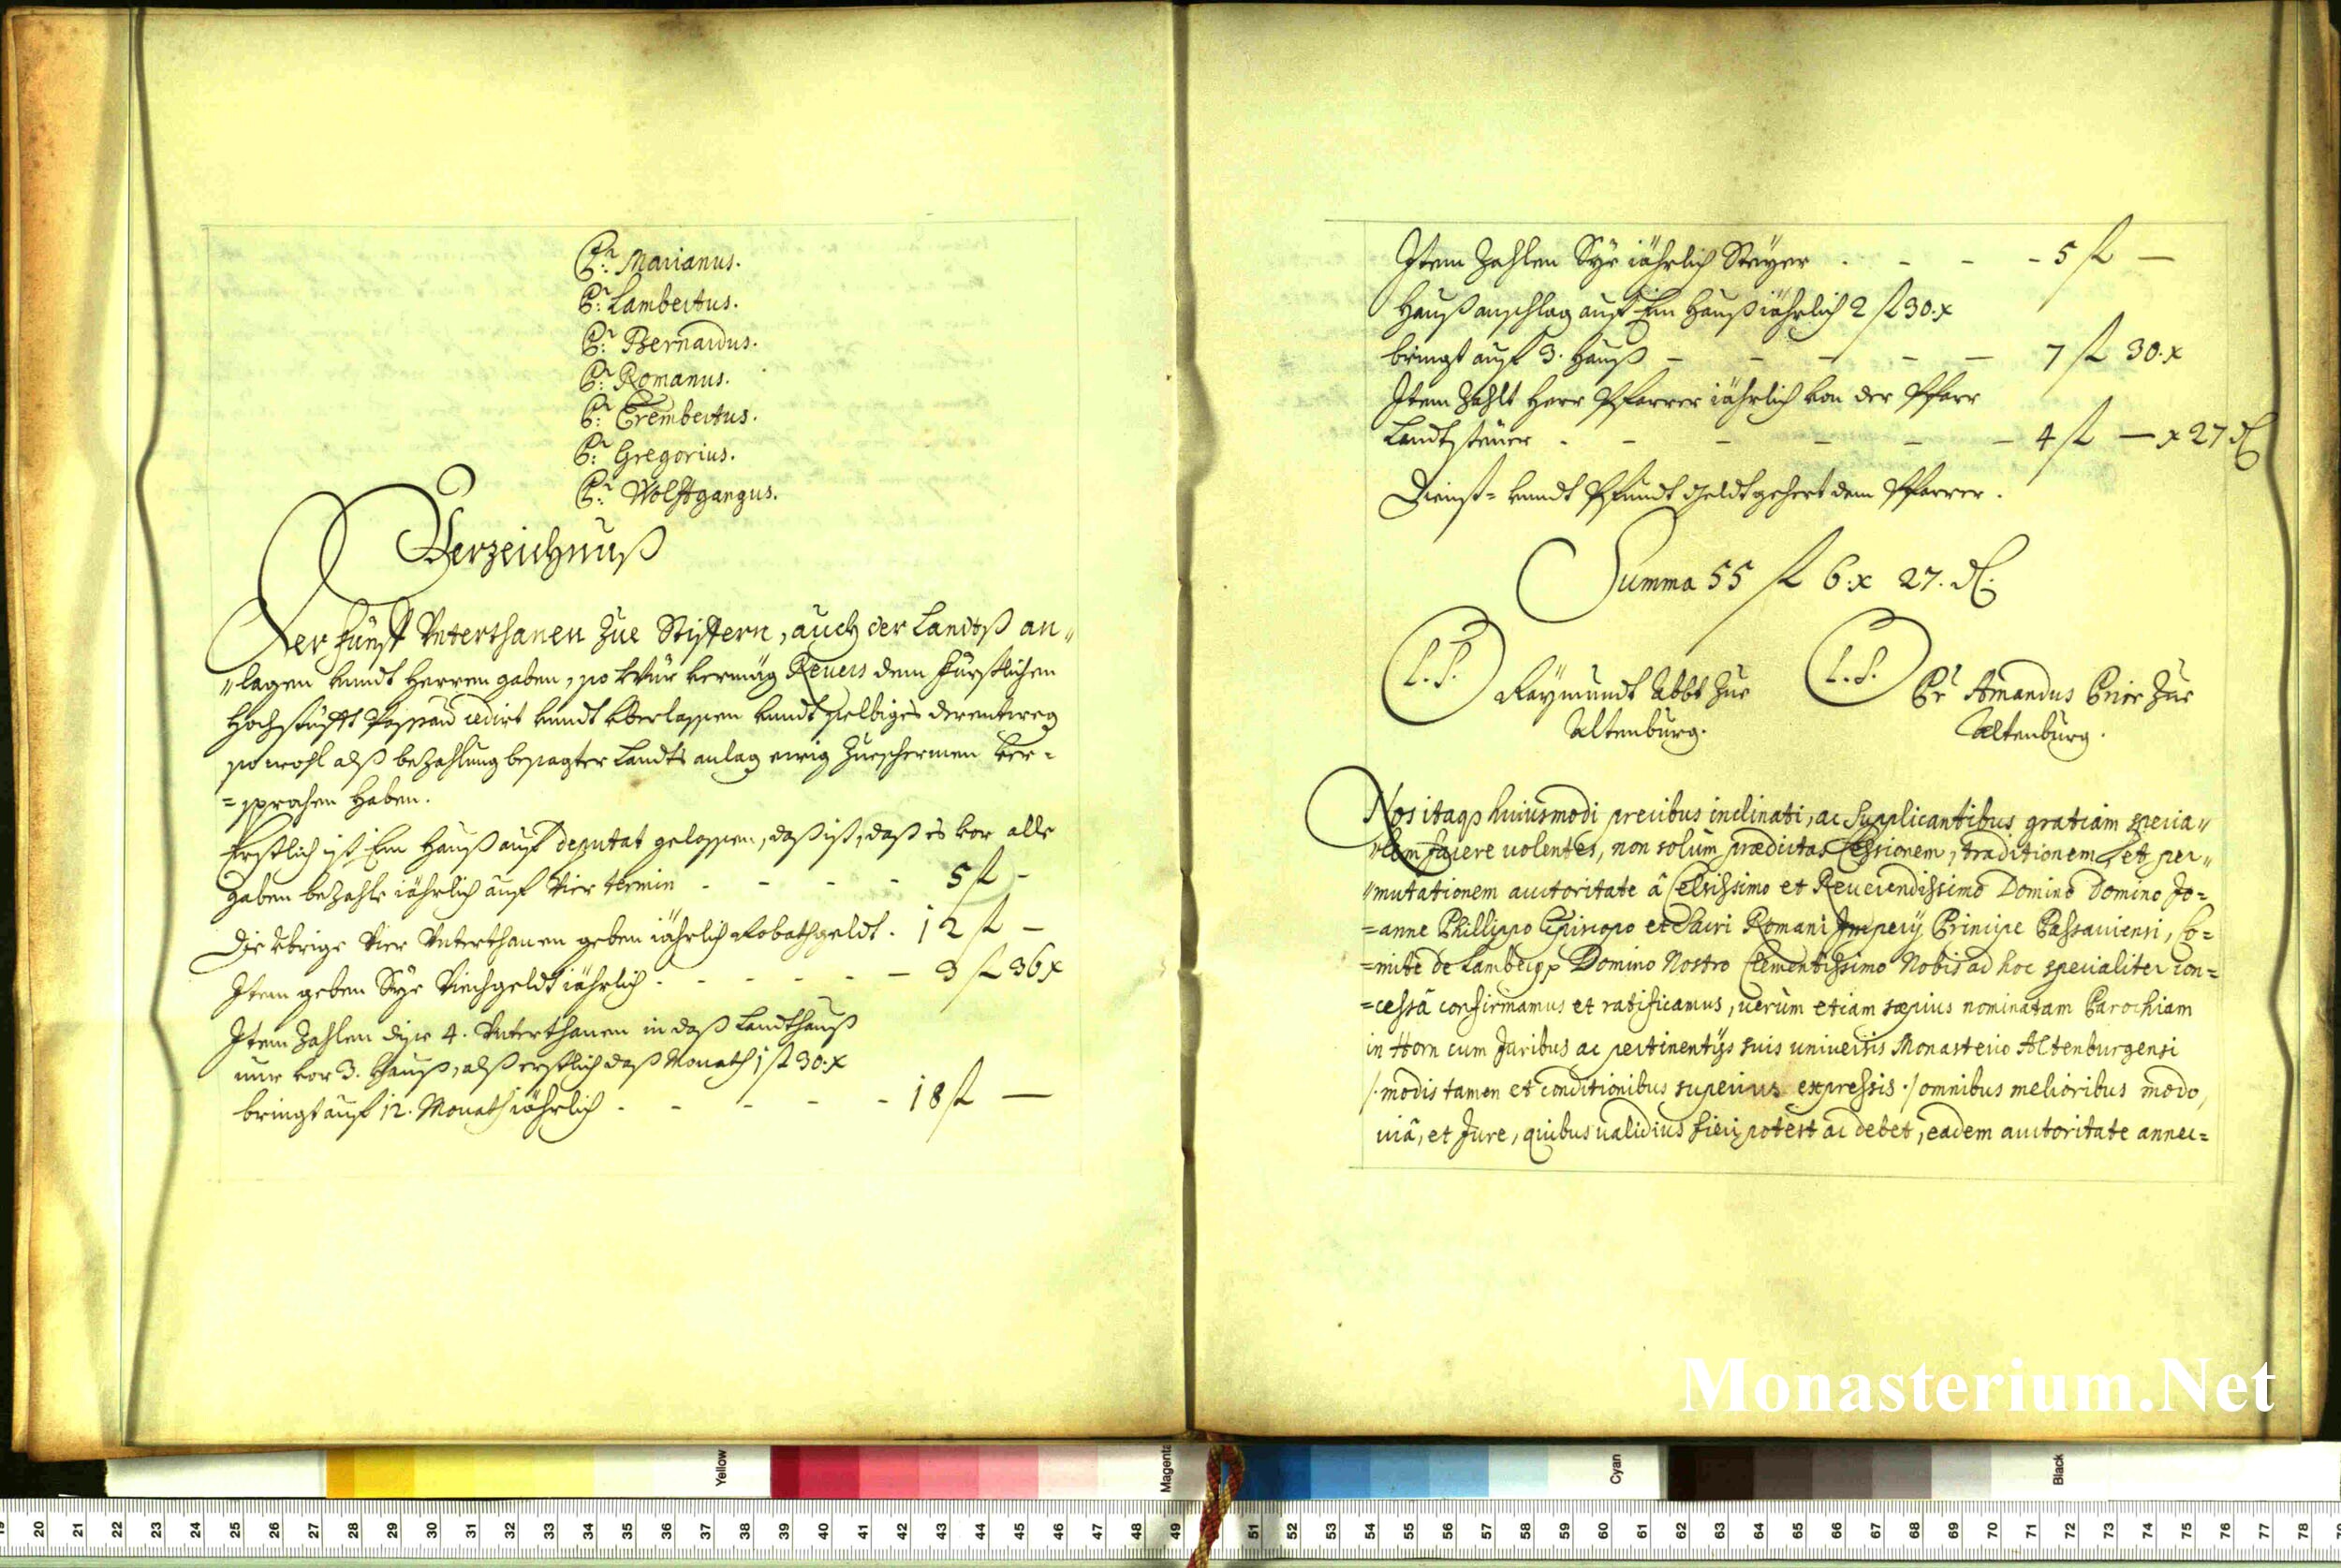 Pr: Marianus.
Pr: Lambertus.
Pr: Bernardus.
Pr: Romanus.
Pr: Erembertus.
Pr: Gregorius.
Pr: Wolffgangus.
Verzeichnuß
Der fünff Unterthanen zue Stiffern, auch der Landtß an„
„lagen vnndt Herren gaben, so Wür vermög Revers dem Fürstlichen
Hochstüfft Passau cedirt vnndt Vberlassen vnndt selbiges derentweg
so wohl alß bezahlung besagter Landts anlag ewig zueschermen ver=
=sprochen haben.
Erstlich ist Ein Hauß auf deputat gelassen, daß ist, daß es vor alle
gaben bezahle iährlich auf Vier termin - - - - 5 fl -
Die Vbrige Vier Vnterthanen geben iährlich Robathgeldt. 12 fl -
Item geben Sye Viechgeldt iährlich - - - - - 3 fl 36 x
Item Zahlen dise 4. Vnterthanen in daß Landthauß
nur vor 3. Hauß, alß erstlich daß Monath 1 fl 30. x
bringt auf 12. Monath iährlich - - - - - 18 fl —
Item Zahlen Sye iährlich Steyer - - - - 5 fl —
Haußanschlag auf Ein Hauß iährlich 2 fl 30. x
bringt auf 3. Hauß - - - - - 7 fl 30. x
Item Zahlt Herr Pfarrer iährlich von der Pfarr
Landtsteuer - - - - - - 4 fl — x 27 d
Dienst= vnndt Pfundt Geldt gehert dem Pfarrer.
Summa 55 fl 6. x 27. d.
L. S. Raymundt Abbt zue
Altenburg.
L. S. Pr Amandus Prior zue
Altenburg.
Nos itaq3 huiusmodi precibus inclinati, ac Supplicantibus gratiam specia„
„lem facere uolentes, non solùm prædictas Cessionem, traditionem, et per„
„mutationem auctoritate â Celsissimo et Reuerendissimo Domino Domino Jo=
=anne Phillippo Episcopo et Sacri Romani Imperÿ Principe Passauiensi, Co=
=mite de Lamberg p Domino Nostro Clementissimo Nobis ad hoc specialiter con=
=cessâ confirmamus et ratificamus, uerùm etiam sæpius nominatam Parochiam
in Horn cum Juribus ac pertinentÿs suis uniuersis Monasterio Altenburgensi
/: modis tamen et conditionibus superius expressis :/ omnibus melioribus modo,
uiâ, et Jure, quibus ualidius fieri potest ac debet, eadem auctoritate annec=
Monasterium.Net
Yellow
Magenta
Cyan
Black
19 20 21 22 23 24 25 26 27 28 29 30 31 32 33 34 35 36 37 38 39 40 41 42 43 44 45 46 47 48 49 51 52 53 54 55 56 57 58 59 60 61 62 63 64 65 66 67 68 69 70 71 72 73 74 75 76 77 78 79